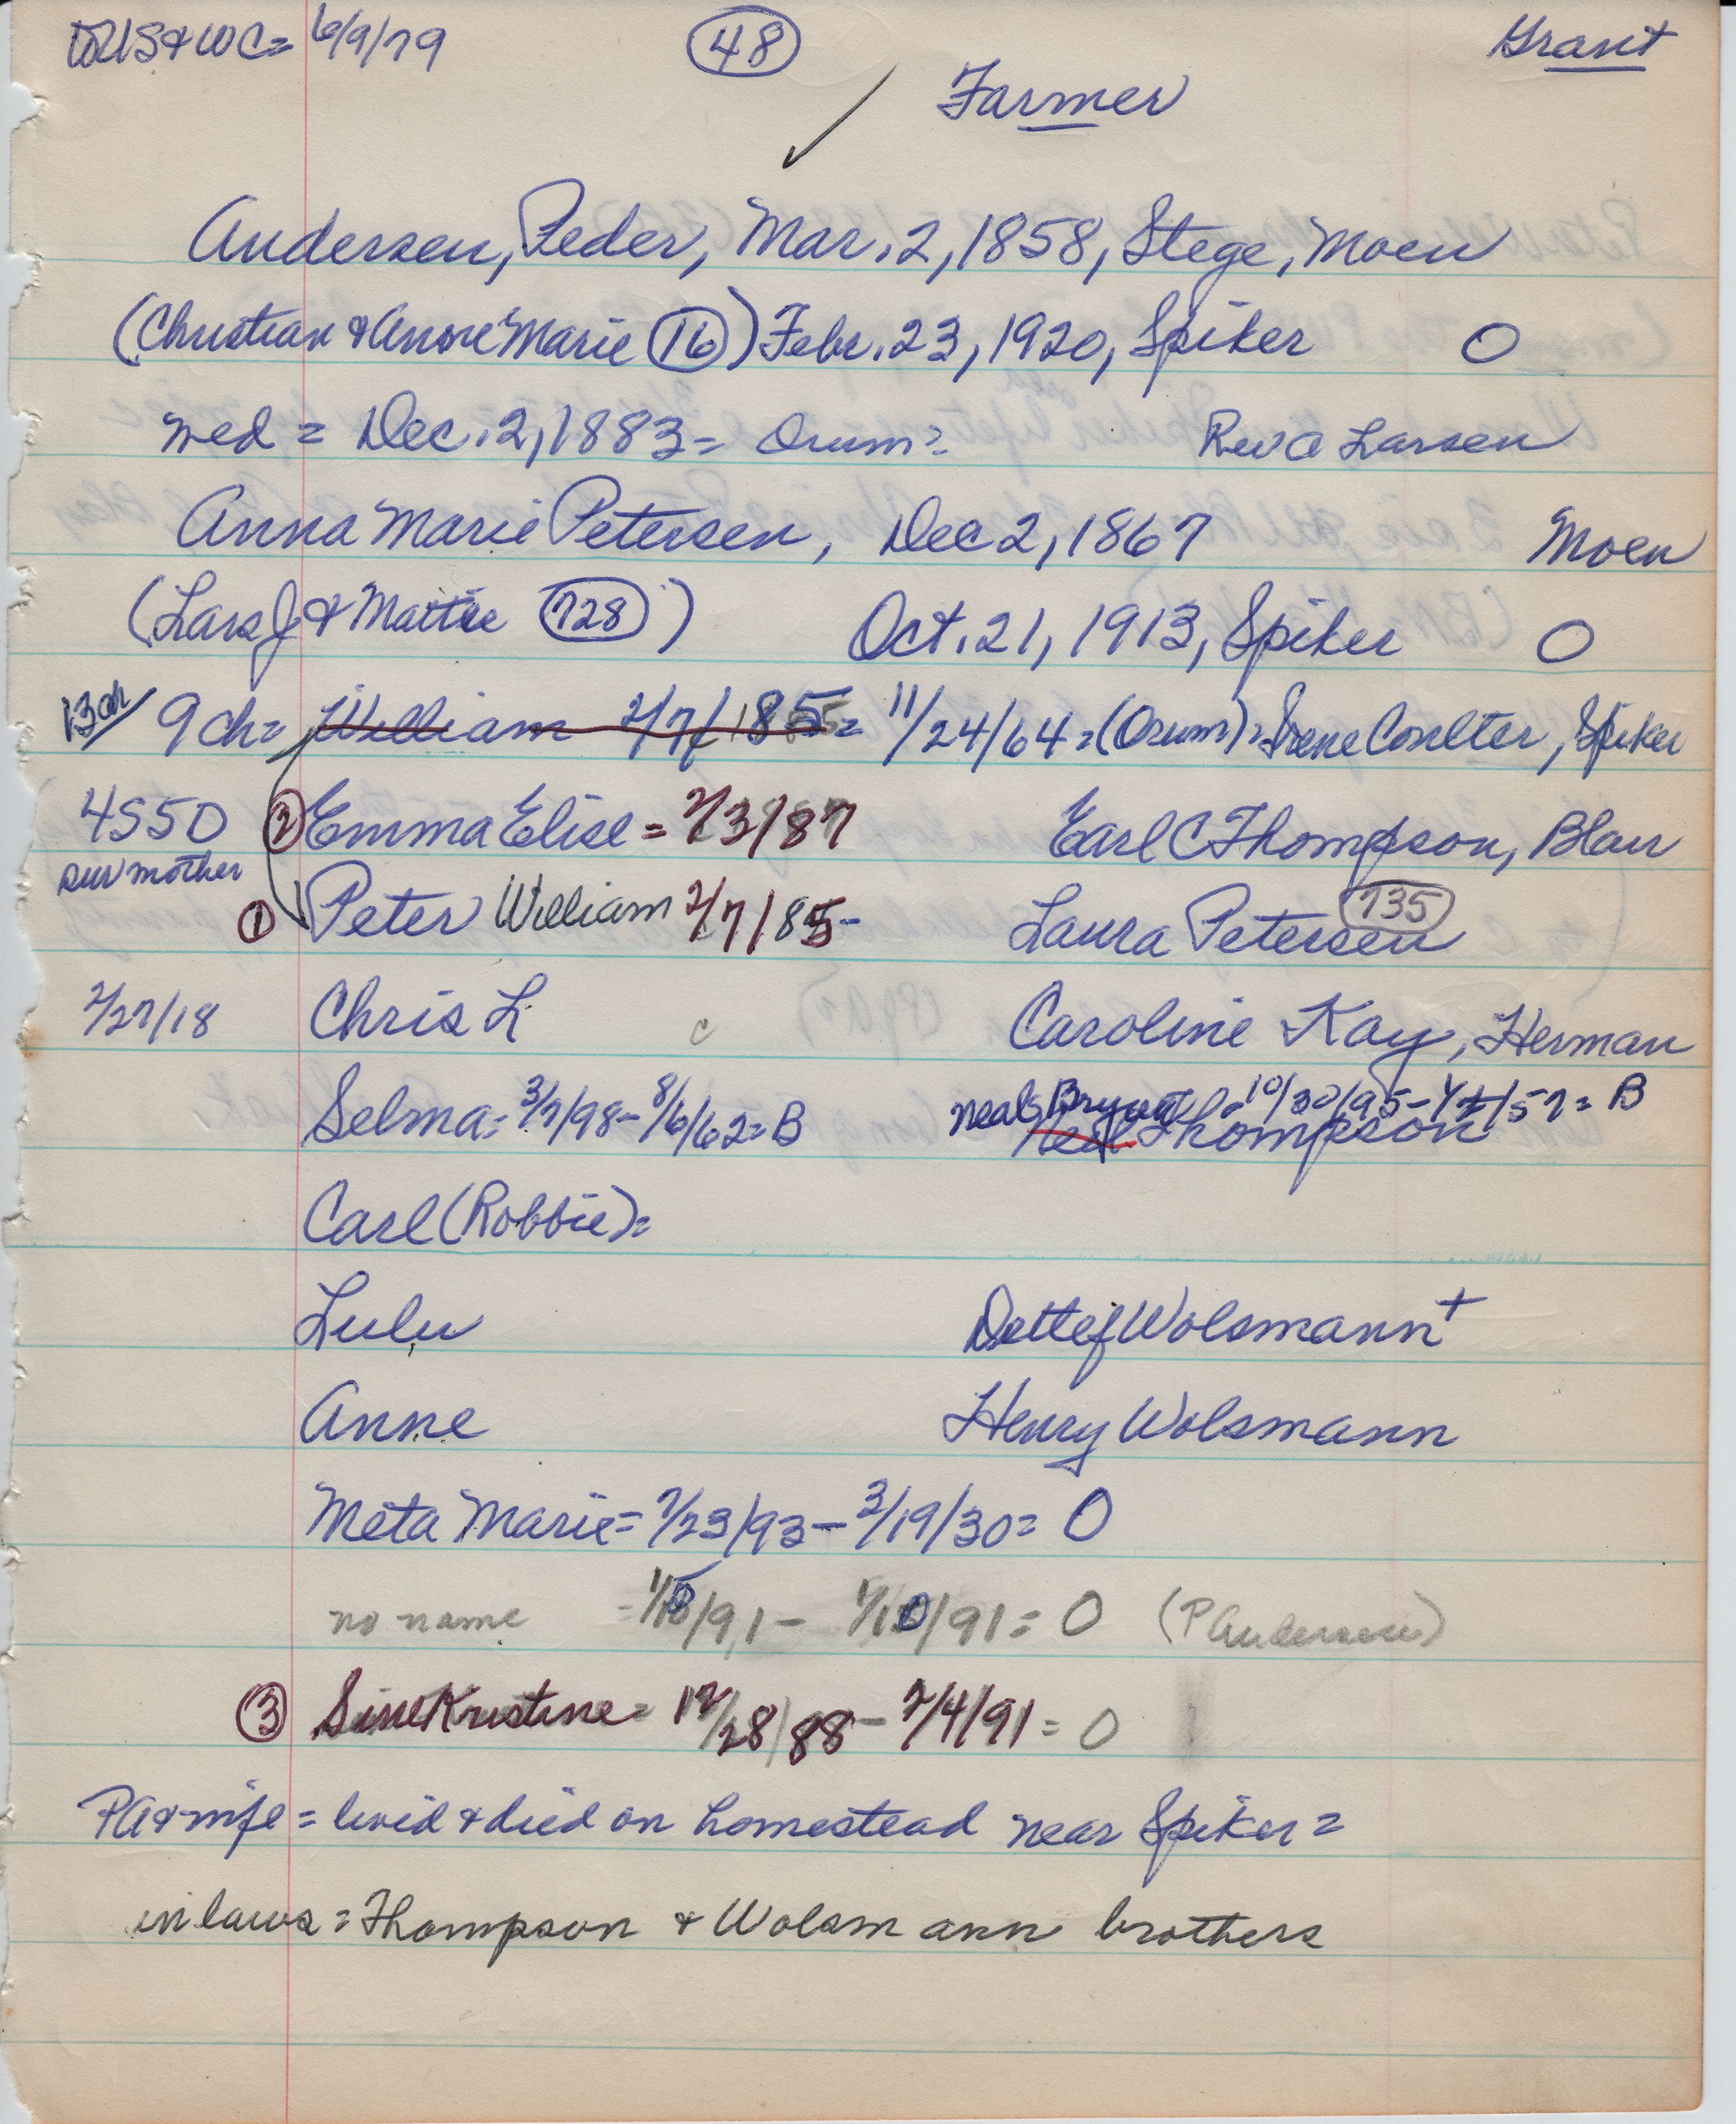 TOUS & WC = 6/9/79 (48) Grant
Farmer
Andersen, Peder, Mar. 2, 1858, Stege, Moen
(Christian & Anne Marie (16)) Febr. 23, 1920, Spiker O
wed = Dec. 2, 1883 = Orum = Rev A Larsen
Anna Marie Petersen, Dec 2, 1867 Moen
(Lars J & Mattie (728)) Oct. 21, 1913, Spiker O
13 ch 9 ch = William 2/7/1885 = 11/24/64 = (Orum) = Irene Coulter, Spiker
4S5D (2) Emma Elise = 2/3/87 Earl C Thompson, Blair
sur mother
(1) Peter William 2/7/85 - Laura Petersen (735)
2/27/18 Chris L c Caroline Kay, Herman
Selma = 3/7/98 - 8/6/62 = B Neals Bryant Thompson = 10/30/95 - 57 = B
Carl (Robbie) =
Lulu Detlef Wolsmann +
Anne Henry Wolsmann
Meta Marie = 7/23/93 - 3/19/30 = O
no name = 1/10/91 - 1/10/91 = O (P Andersen)
(3) Sine Kristine = 12/28/88 - 2/4/91 = O
PA & wife = lived & died on homestead near Spiker =
in laws = Thompson & Wolsmann brothers